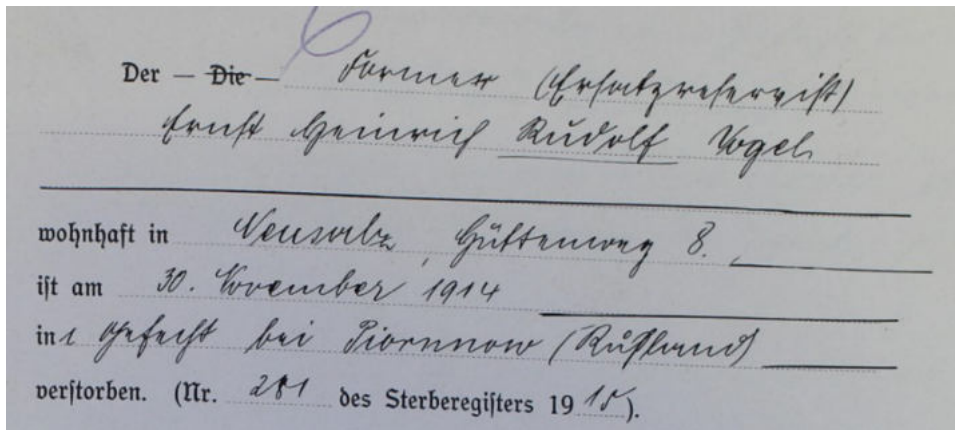 Der — Die — Former (Ersatzreservist)
Ernst Heinrich Rudolf Vogel
wohnhaft in Neusalz, Hüttenweg 8.
ist am 30. November 1914
im Gefecht bei (Rußland)
verstorben. (Nr. 281 des Sterberegisters 1915).